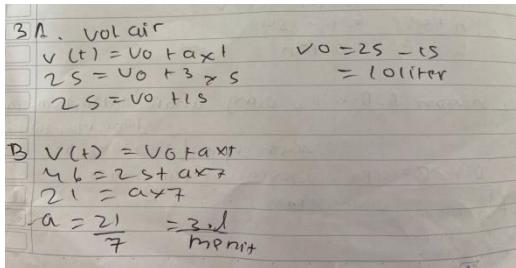 3 A. vol air
v (t) = vo + a x t
25 = vo + 3 x 5
25 = vo + 15
vo = 25 - 15
= 10 liter
B v(t) = vo + a x t
46 = 25 + a x 7
21 = a x 7
a = 21/7 = 3.l/menit